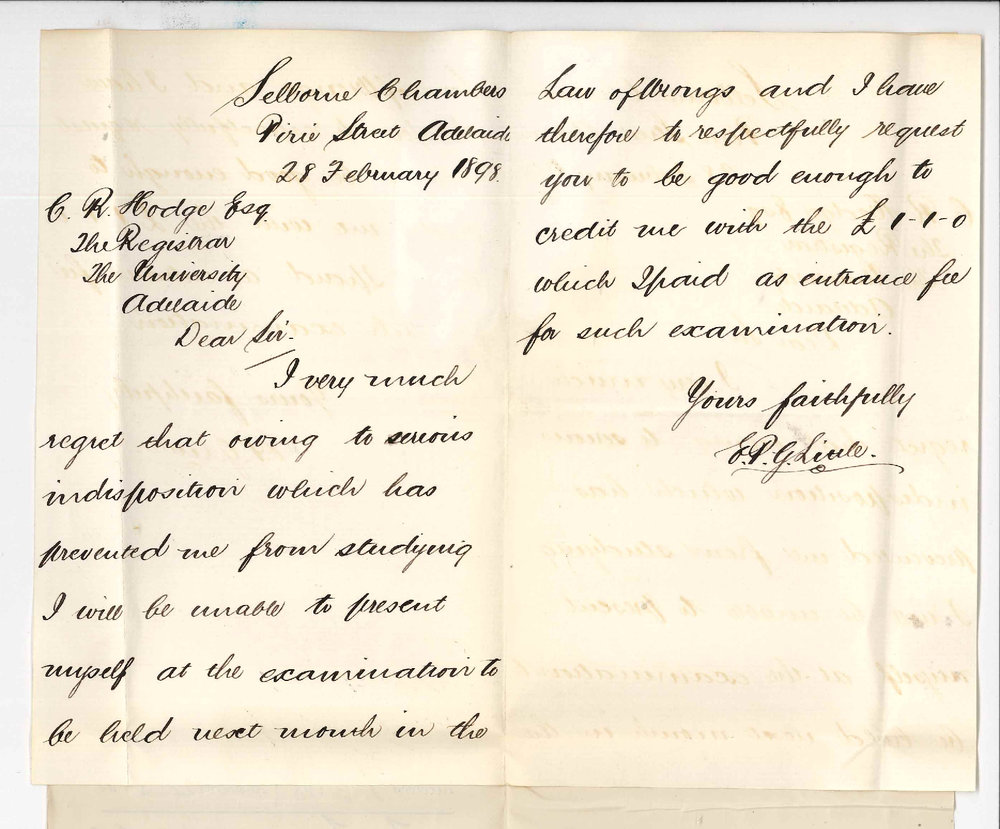 Selborne Chambers
Pirie Street Adelaide
28 February 1898.
C. R. Hodge Esq.
The Registrar
The University
Adelaide
Dear Sir.
I very much
regret that owing to serious
indisposition which has
prevented me from studying
I will be unable to present
myself at the examination to
be held next month in the
Law of Wrongs and I have
therefore to respectfully request
you to be good enough to
credit me with the £1-1-0
which I paid as entrance fee
for such examination.
Yours faithfully
E.P.G. Little.